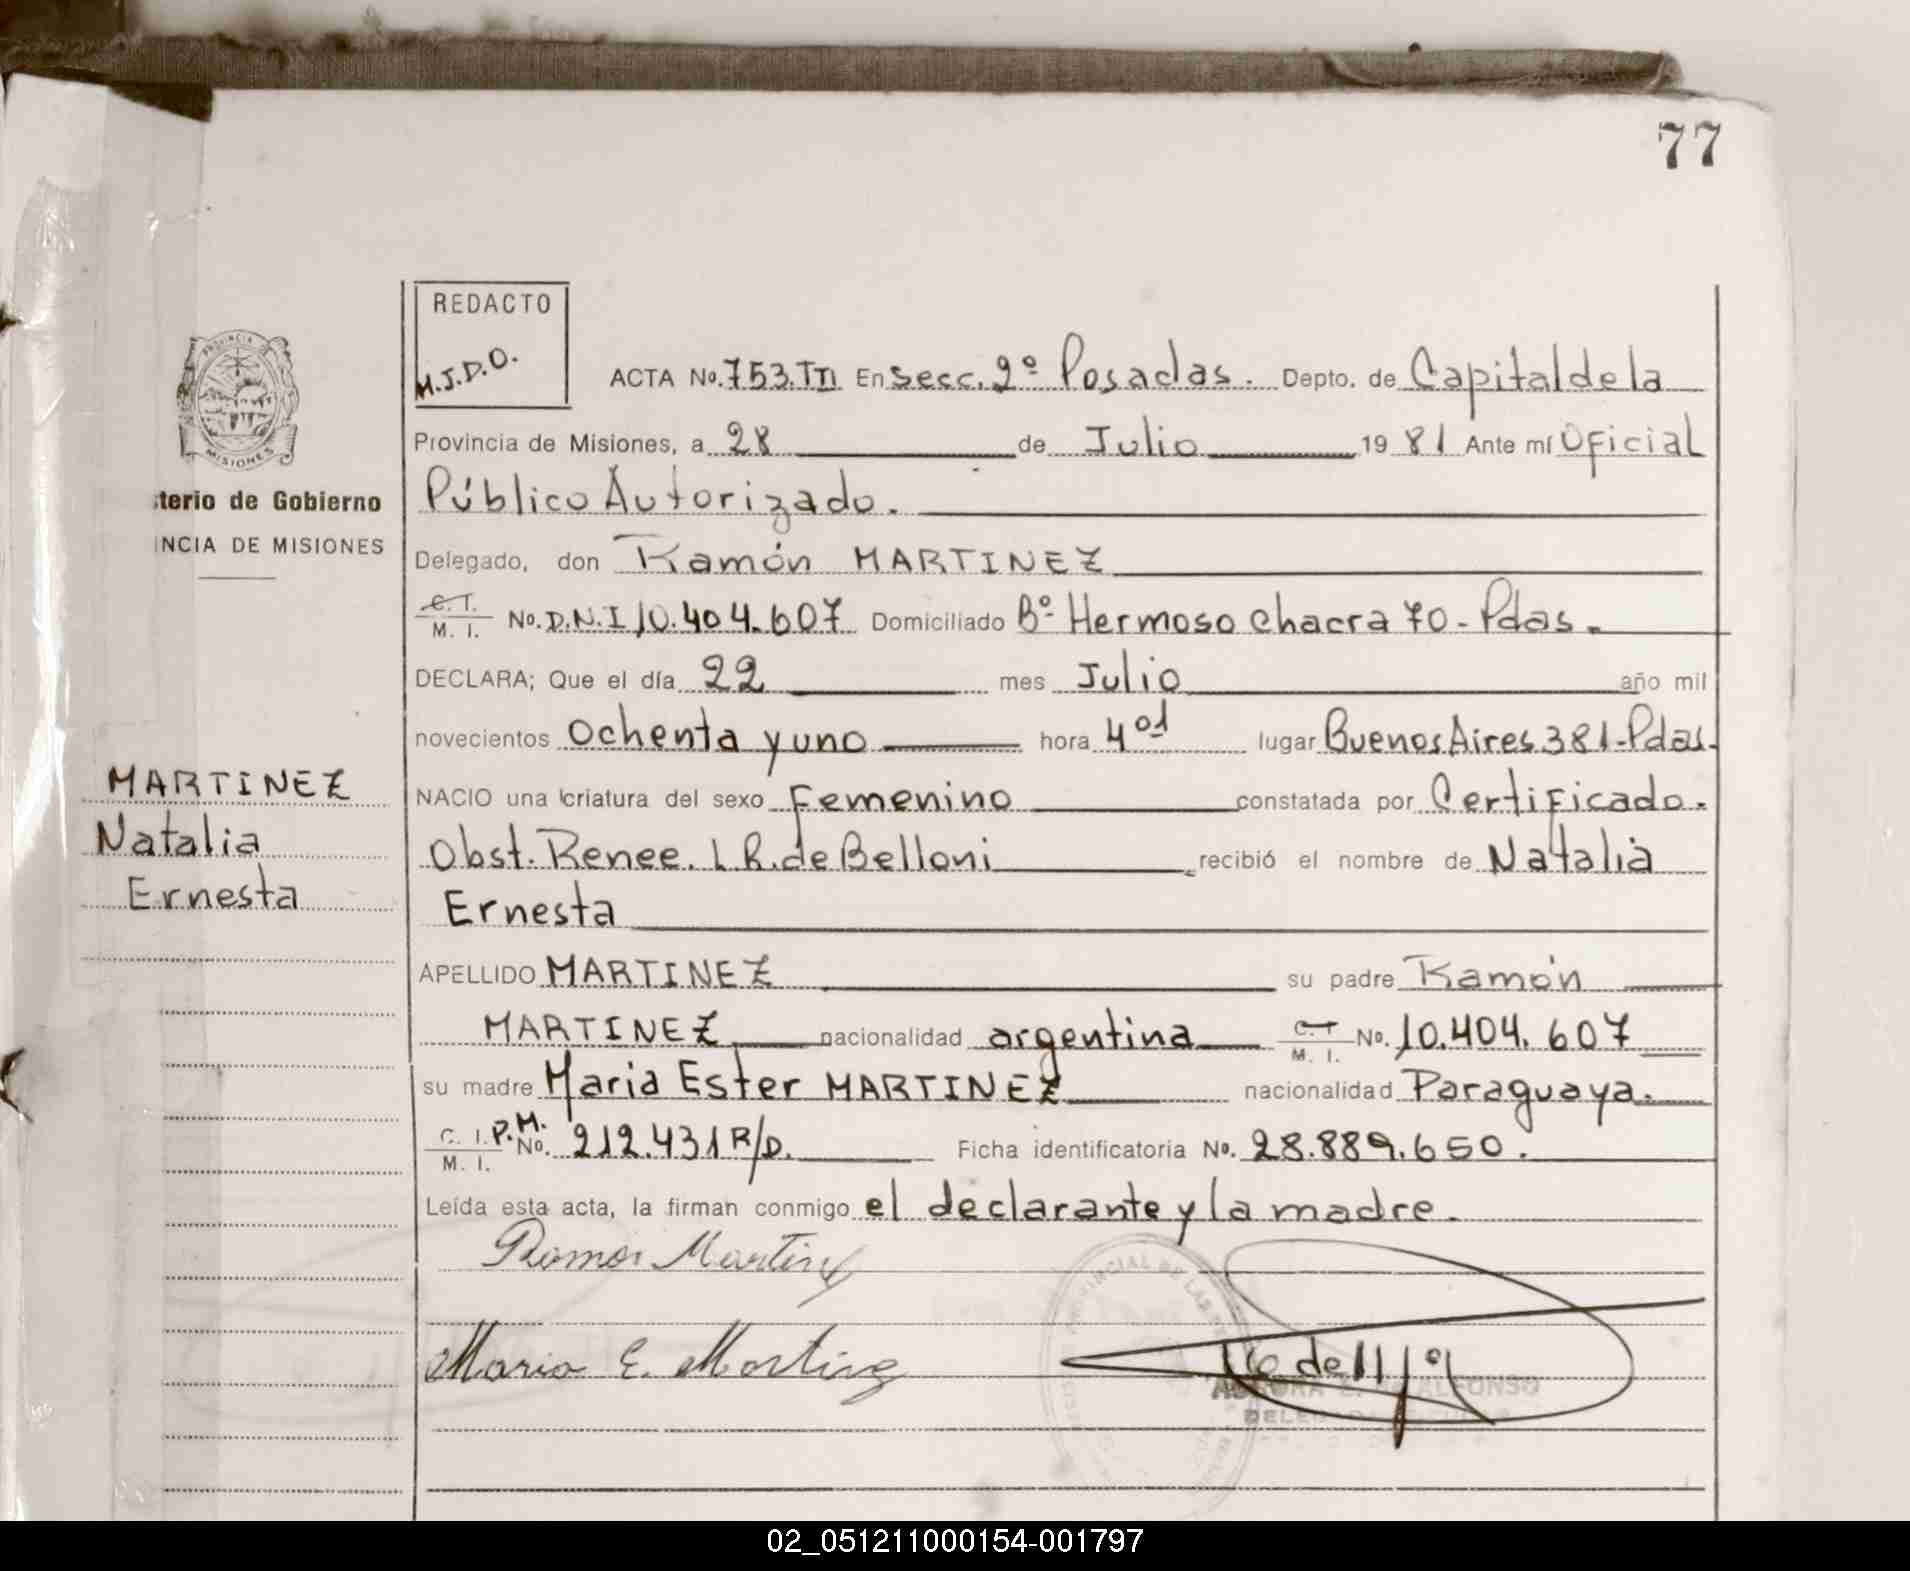 77
REDACTO
M.J.D.O.
ACTA No. 753. TII En Secc. 2º Posadas. Depto. de Capital de la
Provincia de Misiones, a 28 de Julio 1981 Ante mí Oficial
Público Autorizado.
Delegado, don Ramón MARTINEZ
C. I. M. I. No. D.N.I 10.404.607 Domiciliado Bº Hermoso chacra 70 - Pdas.
DECLARA; Que el día 22 mes Julio año mil
novecientos Ochenta y uno hora 4 lugar Buenos Aires 381 - Pdas.
NACIO una criatura del sexo Femenino constatada por Certificado.
Obst. Renee. L.R. de Belloni recibió el nombre de Natalia
Ernesta
APELLIDO MARTINEZ su padre Ramón
MARTINEZ nacionalidad argentina M. I. No. 10.404.607
su madre Maria Ester MARTINEZ nacionalidad Paraguaya.
C. I. M. I. P.M. No. 212.431 R/D. Ficha identificatoria No. 28.889.650.
Leída esta acta, la firman conmigo el declarante y la madre.
Ramon Martinez
Maria E. Martinez
PROVINCIA DE
MISIONES
sterio de Gobierno
INCIA DE MISIONES
MARTINEZ
Natalia
Ernesta
02_051211000154-001797